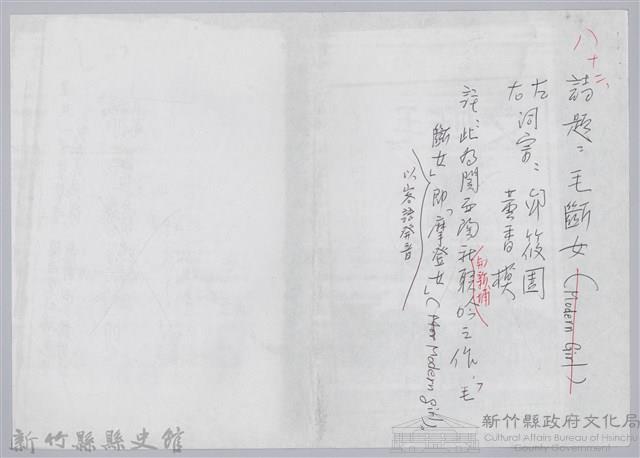 八十二、
詩題：毛斷女(Modern Girl)
左詞宗：邱筱園
右　　　黃香模
註：此為関西陶社聯吟之作，「毛
和新埔
斷女」即「摩登女」(Modern girl)。
以客語発音
新竹縣縣史館
新竹縣政府文化局
Cultural Affairs Bureau of Hsinchu
County Government